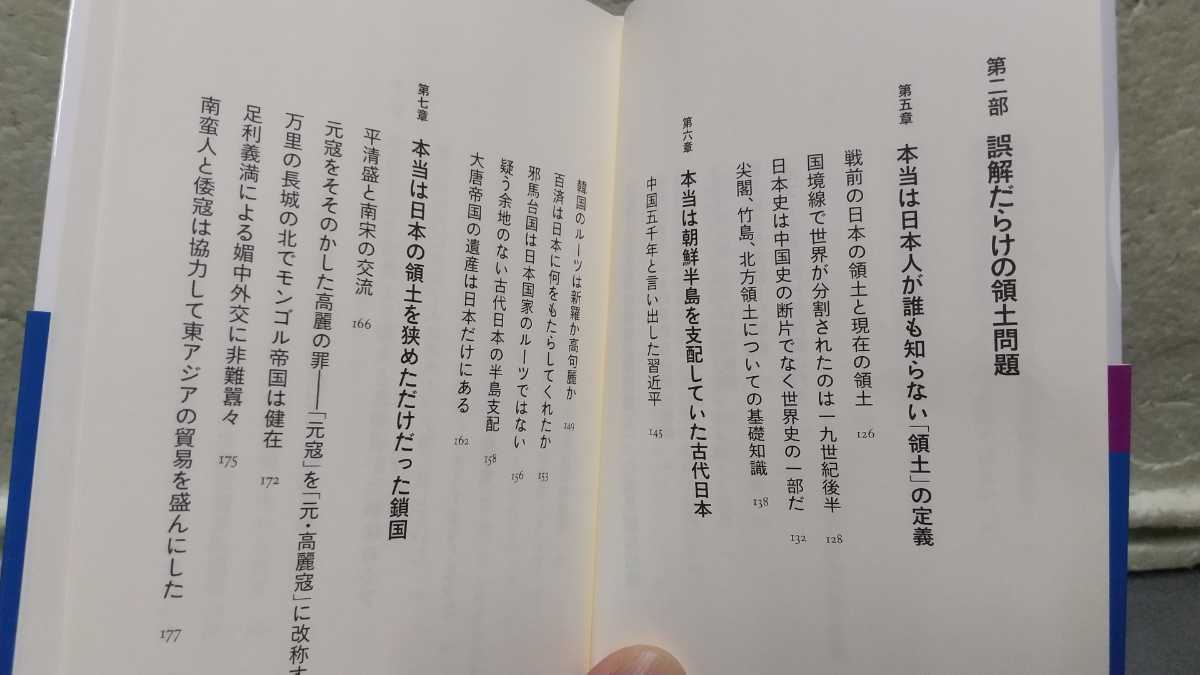 第二部 誤解だらけの領土問題
第五章 本当は日本人が誰も知らない「領土」の定義
戦前の日本の領土と現在の領土 126
国境線で世界が分割されたのは一九世紀後半 128
日本史は中国史の断片でなく世界史の一部だ 132
尖閣、竹島、北方領土についての基礎知識 138
第六章 本当は朝鮮半島を支配していた古代日本
中国五千年と言い出した習近平 145
韓国のルーツは新羅か高句麗か 149
百済は日本に何をもたらしてくれたか 153
邪馬台国は日本国家のルーツではない 156
疑う余地のない古代日本の半島支配 158
大唐帝国の遺産は日本だけにある 162
第七章 本当は日本の領土を狭めただけだった鎖国
平清盛と南宋の交流 166
元寇をそそのかした高麗の罪――「元寇」を「元・高麗寇」に改称す
万里の長城の北でモンゴル帝国は健在 172
足利義満による媚中外交に非難囂々 175
南蛮人と倭寇は協力して東アジアの貿易を盛んにした 177